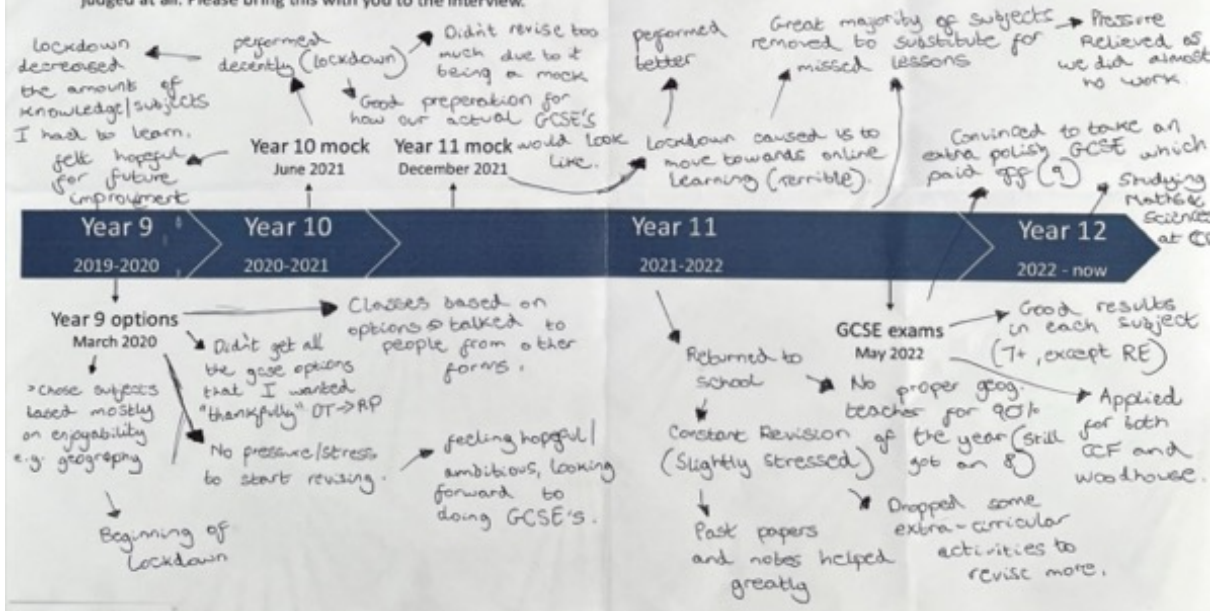 judged at all. Please bring this with you to the interview.
lockdown
decreased
the amount of
knowledge/subjects
I had to learn.
felt hopeful
for future
improvment
performed
decently (lockdown)
Didn't revise too
much due to it
being a mock
Good preparation for
how our actual GCSE's
would look
like.
Year 10 mock
June 2021
Year 11 mock
December 2021
performed
better
Lockdown caused is to
move towards online
learning (terrible).
Great majority of subjects
removed to substitute for
missed lessons
Pressure
Relieved as
we did almost
no work.
Convinced to take an
extra polish GCSE which
paid off (9)
Studying
Maths &
Sciences
at
Year 9
2019-2020
Year 10
2020-2021
Year 11
2021-2022
Year 12
2022 - now
Year 9 options
March 2020
>Chose subjects
based mostly
on enjoyability
e.g. geography
Beginning of
Lockdown
Didn't get all
the gcse options
that I wanted
"thankfully" DT->RP
No pressure/stress
to start revising.
Classes based on
options talked to
people from other
forms.
feeling hopeful/
ambitious, looking
forward to
doing GCSE's.
Returned to
school
Constant Revision
(Slightly stressed)
Past papers
and notes helped
greatly
No proper geog.
teacher for 90%
of the year (still
got an 8)
Dropped some
extra-cirricular
activities to
revise more.
GCSE exams
May 2022
Good results
in each subject
(7+, except RE)
Applied
for both
CCF and
woodhouse.